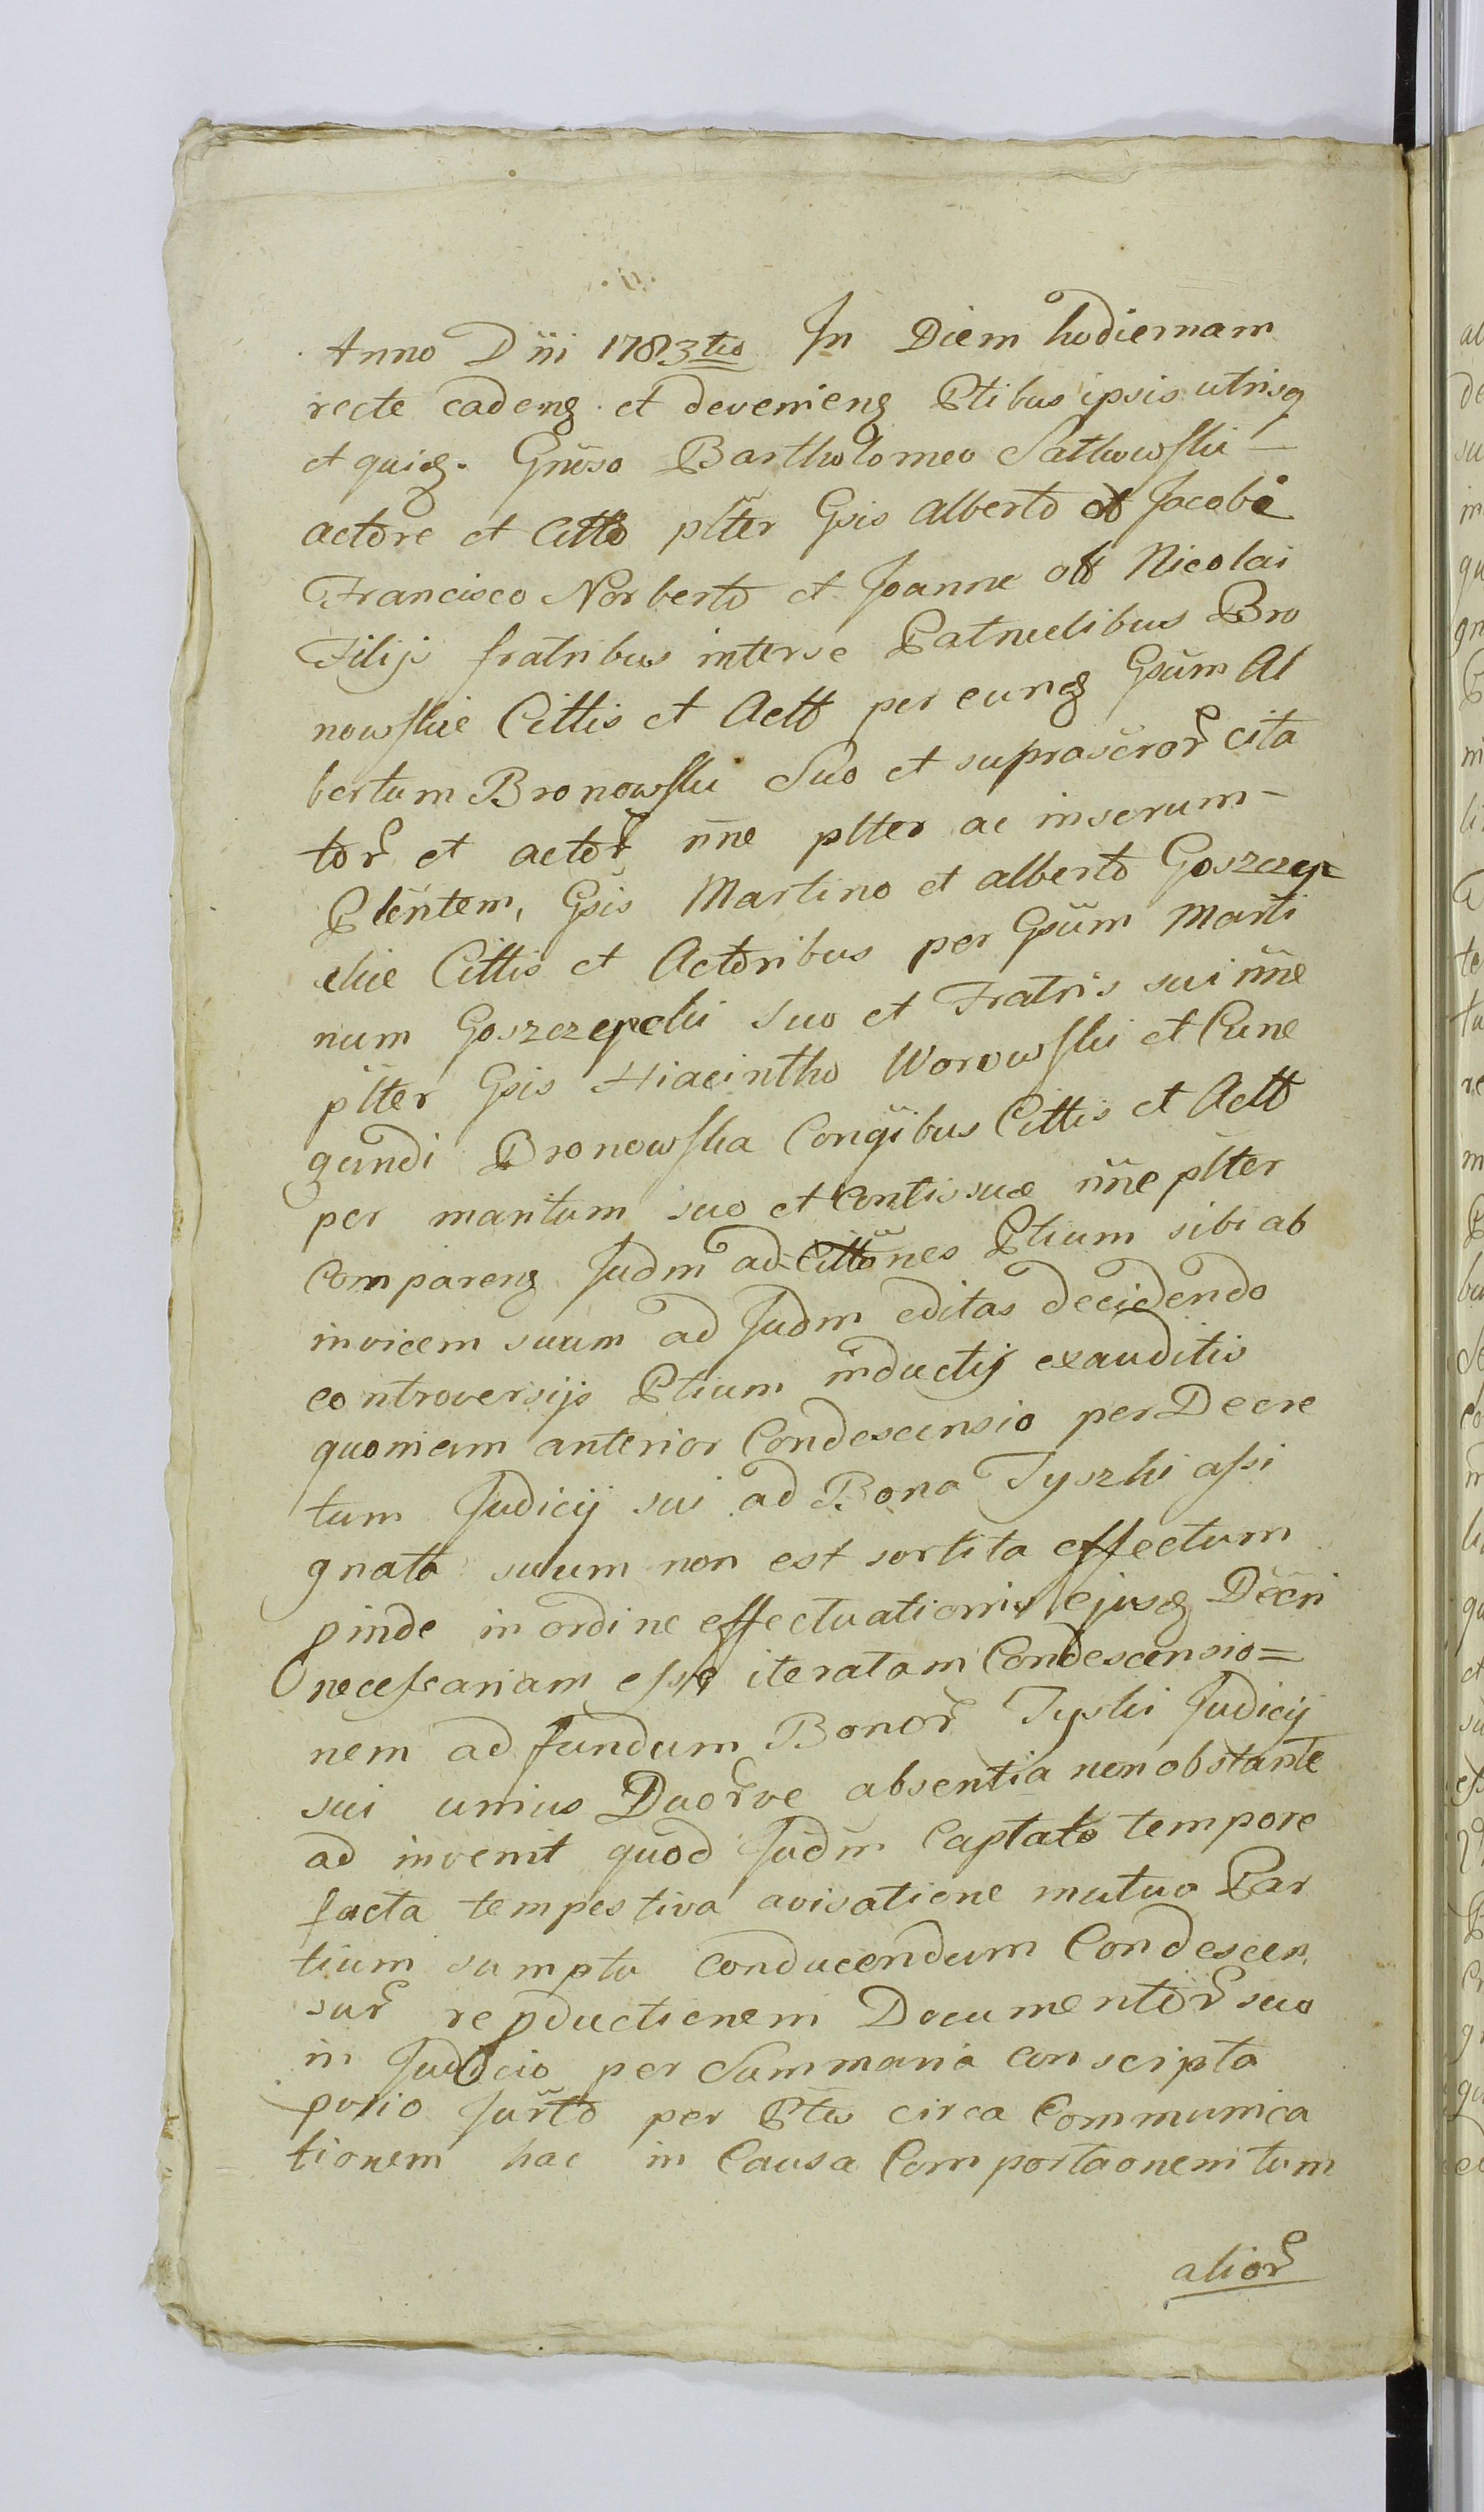 Anno Dñi 1783tio In Diem hodiernam
recte cadenꝫ et devenienꝫ Ptibus ipsis utrisq
et quidꝫ. Gñeso Bartholomeo Satkowski –
actore et Citto plter Gsis Alberto et Jacobo
Francisco Norberto et Joanne olt Nicolai
Filijs fratribus interse Patruelibus Bro
nowskie Cittis et Actt per eunꝫ Gsum Al
bertum Bronowski Suo et suprascror cita
tor et actor nñe plter ac inserum –
Plentem, Gsis Martino et Alberto Goszczep
ckie Cittis et Actoribus per Gsum Marti
num Goszczepcki Suo et Fratris sui nñe
plter Gsis Hiacintho Worowski et Cune
gundi Bronowska Conqibus Cittis et Actt
per maritum suo et Contissuæ nñe plter
Comparenꝫ Judm ad Cittõnes Ptium sibi ab
invicem suum ad Judm editas decidendo
controversijs Ptium inductij exauditis
quoniam anterior Condescensio per Decre
tum Judicij sui ad Bona Tyszki assi
gnata suum non est sortita effectum
pinde in ordine effectuationis ejusꝫ Decri
necessariam esse iteratam Condescensio=
nem ad fundum Bonor Tyski Judicij
sui unius Duorve absentia non obstante
ad invenit quod Judm Captato tempore
facta tempestiva avisatione mutuo Par
tium sumptu conducendum Condescen
sur repductionem Documentor suo
in Judicio per Summaria conscipta
pvio Jurto per Ptes circa Communica
tionem hac in Causa Comportaonem tum
alior